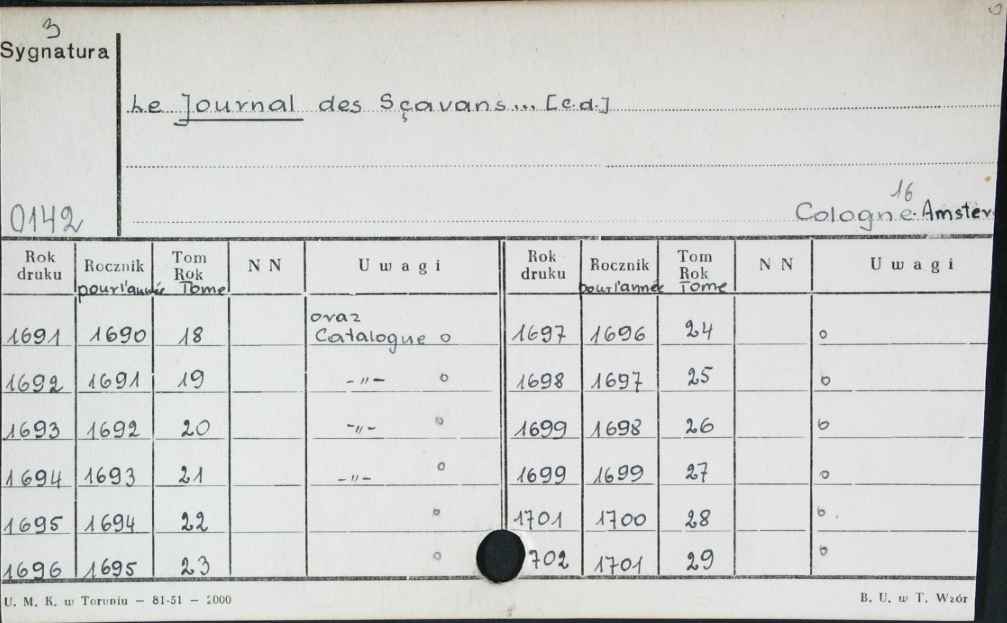 3
Sygnatura
Le Journal des Sçavans... [c.d.]
16
0142
Cologne-Amster
Rok druku Rocznik pour l'année Tom Rok Tome N N Uwagi Rok druku Rocznik pour l'année Tom Rok Tome N N Uwagi
1691 1690 18 oraz Catalogue o 1697 1696 24 o
1692 1691 19 -"- o 1698 1697 25 o
1693 1692 20 -"- o 1699 1698 26 o
1694 1693 21 -"- o 1699 1699 27 o
1695 1694 22 o 1701 1700 28 o
1696 1695 23 o 702 1701 29 o
U. M. K. w Toruniu — 81-51 — 2000 B. U. w T. Wzór